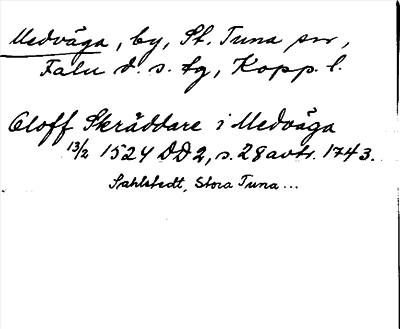 Medväga, by, St. Tuna sn,
Falu d. s. tg, Kopp. l.
Oloff Skräddare i Medväga
13/2 1524 DD2, s. 28 avtr. 1743.
Sahlstedt, Stora Tuna...